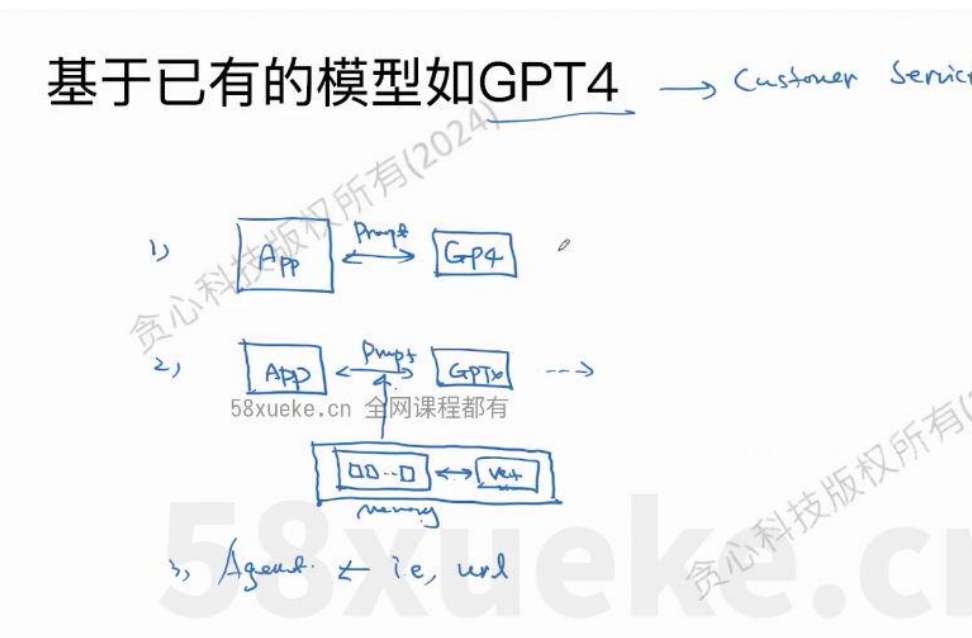 基于已有的模型如GPT4 → Customer Servic
贪心科技版权所有(2024)
1) App Prompt GP4
2) App Prompt GPTx --->
58xueke.cn 全网课程都有
□□--□ Vect
memory
3, Agent. ← i.e, url
58xueke.cn
贪心科技版权所有(2